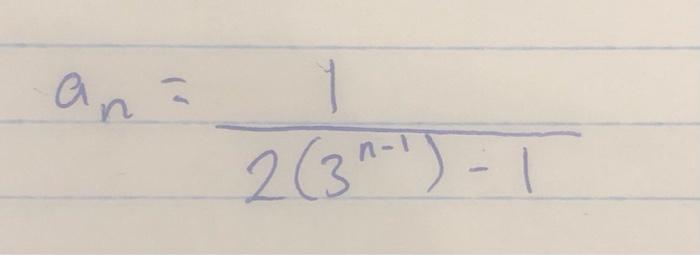 aₙ = 1 / (2(3ⁿ⁻¹) - 1)